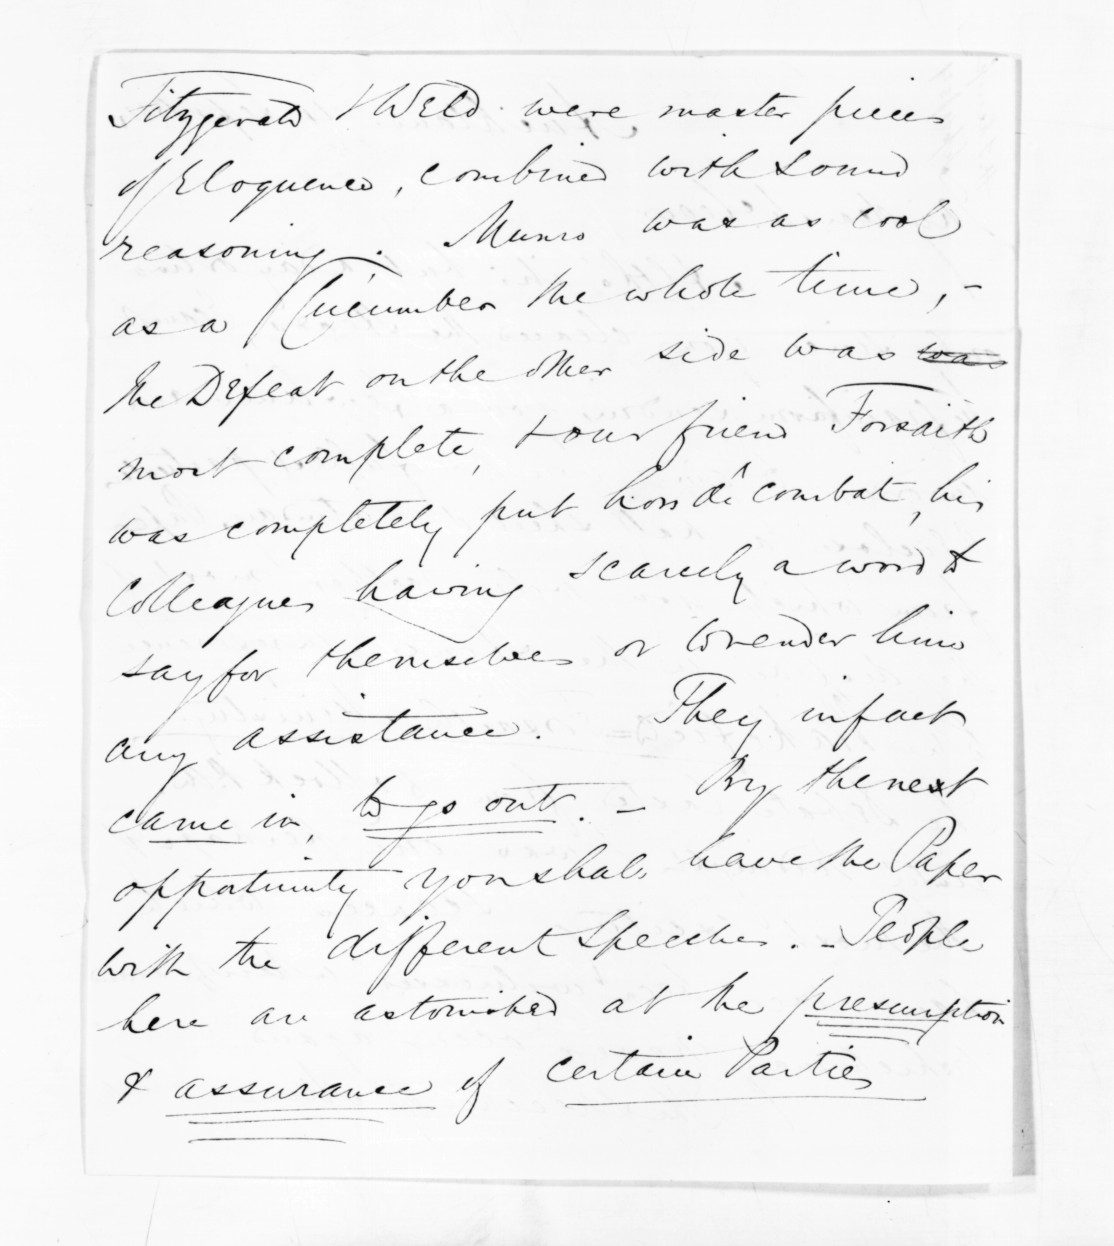 Fitzgerald & Weld were master pieces
of Eloquence, combined with Sound
reasoning. Munro was as cool
as a Cucumber the whole time, -
the Defeat on the other side was was
most complete, & our friend Forsaith
was completely put hors de combat, his
Colleagues having scarcely a word to
say for themselves or to render him
any assistance. They in fact
came in, to go out. - By the next
opportunity you shall have the Paper
with the different Speeches. - People
here are astonished at the presumption
& assurance of certain Parties